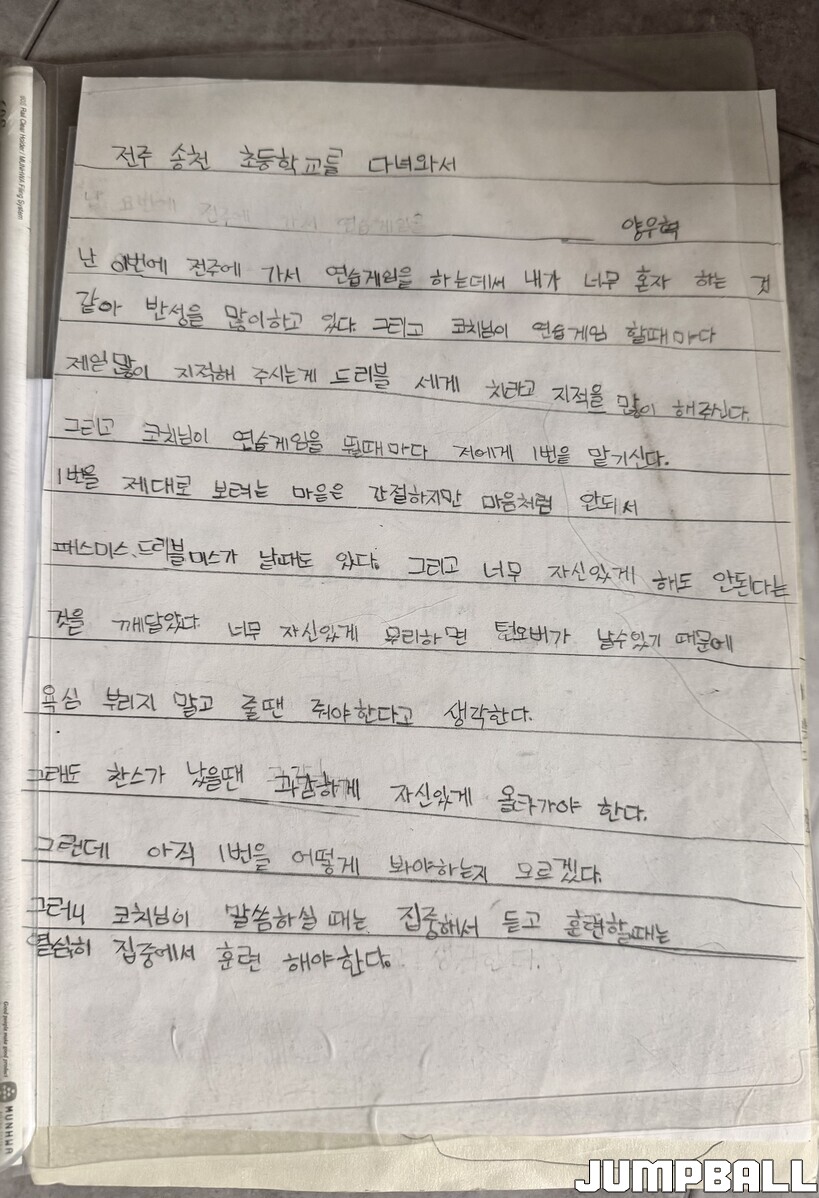 전주 송천 초등학교를 다녀와서
양우혁
난 이번에 전주에 가서 연습게임을 하는데써 내가 너무 혼자 하는 것
같아 반성을 많이하고 있다. 그리고 코치님이 연습게임 할때마다
제일많이 지적해 주시는게 드리블 세게 치라고 지적을 많이 해주신다.
그리고 코치님이 연습게임을 뛸때마다 저에게 1번을 맡기신다.
1번을 제대로 보려는 마음은 간절하지만 마음처럼 안되서
패스미스, 드리블미스가 날때도 있다. 그리고 너무 자신있게 해도 안된다는
것을 깨달았다. 너무 자신있게 무리하면 턴오버가 날수있기 때문에
욕심 부리지 말고 줄땐 줘야한다고 생각한다.
그래도 찬스가 났을땐 과감하게 자신있게 올라가야 한다.
그런데 아직 1번을 어떻게 봐야하는지 모르겠다.
그러니 코치님이 말씀하실 때는 집중해서 듣고 훈련할때는
열심히 집중에서 훈련 해야한다.
Good people make good product
MUNHWA
JUMPBALL